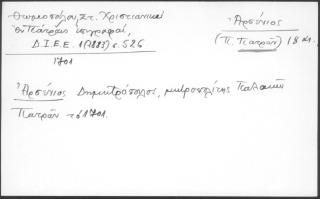 Θωμοπούλου, Στ. Χριστιανικαὶ
ἐν Πατραις ἐπιγραφαί,
Δ.Ι.Ε.Ε. 1 (1883) σ. 526
1701
Ἀρσένιος
(Π. Πατρῶν) 18 αι.
Ἀρσένιος Δημητρόπουλος, μητροπολίτης Παλαιῶν
Πατρῶν τὸ 1701.